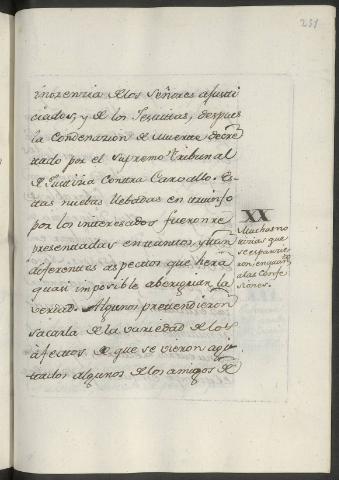 231
inozenzia de los Señores ajusti
ciados, y de los Jesuitas, despues
la Condenazion de muerte decre
tado por el Supremo Tribunal
d Justizia contra Caroallo. Es
tas nuebas llebadas en triunfo
por los interesados fueron re
presentadas en tantos, y tan
diferentes aspectos que hera
quasi imposible aberiguar la
verdad. Algunos pretendieron
sacarla de la variedad de los
afectos, de que se vieron agi
tados algunos de los amigos de
XX
Muchas no
tizias que
se esparzie
ron, en quanto
a las Confe
siones.